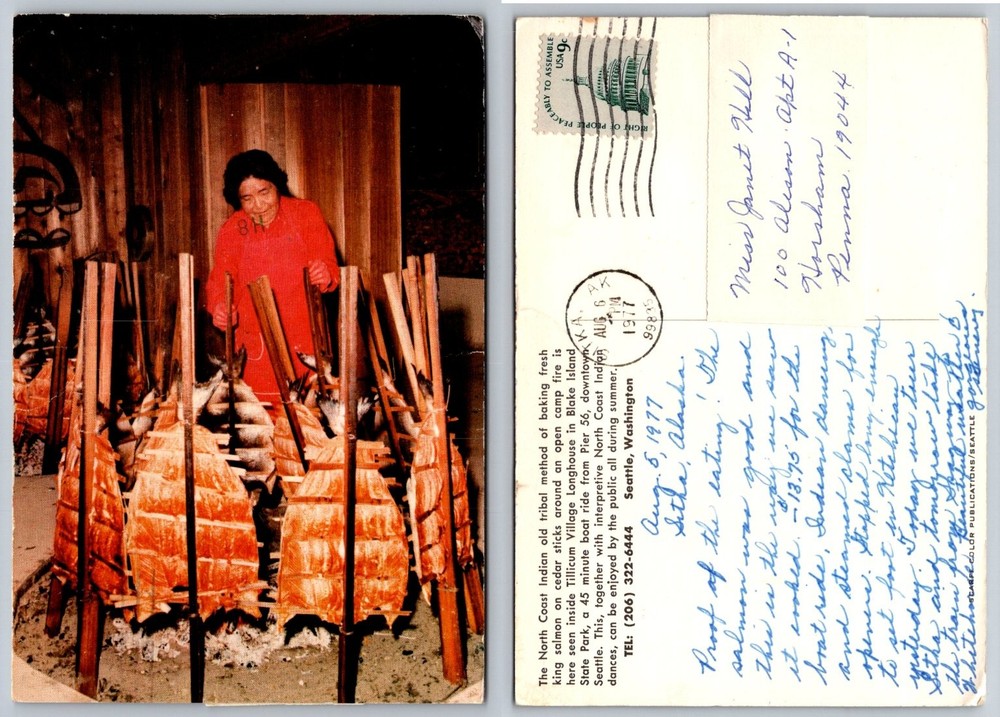 The North Coast Indian old tribal method of baking fresh
king salmon on cedar sticks around an open camp fire is
here seen inside Tillicum Village Longhouse in Blake Island
State Park, a 45 minute boat ride from Pier 56, downtown
Seattle. This, together with interpretive North Coast Indian
dances, can be enjoyed by the public all during summer.
TEL: (206) 322-6444 Seattle, Washington
Aug. 5, 1977
Sitka, Alaska.
Proof of the eating! The
salmon was good and
this is the only one I saw
it cooked - $13.75 for the
boatride, Indian dancing
and steamed clams for
openers. Stopped long enough
to set foot in Ketchikan
yesterday. Today we tour
Sitka and tomorrow take
the train from Skagway to
Whitehorse. Beautiful weather &
scenery.
COLOR PUBLICATIONS/SEATTLE
RIGHT OF PEOPLE PEACEABLY TO ASSEMBLE
USA 9c
AK
AUG 6
PM
1977
99835
Miss Janet Hill
100 Apt A-1
Horsham
Penna. 19044